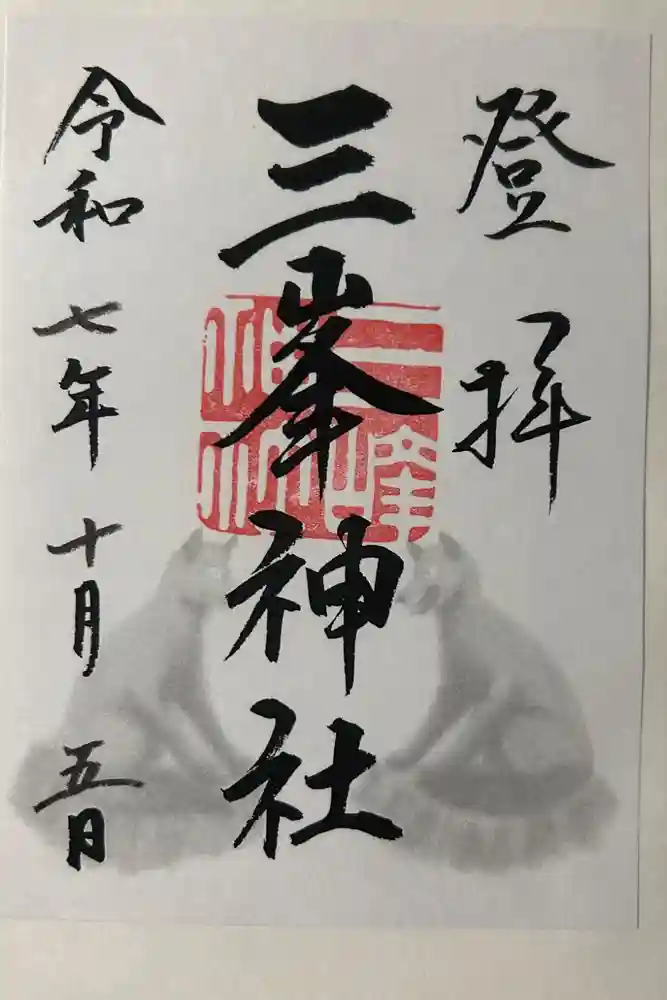 登拝
三峯神社
三峰神社
令和七年十月五日